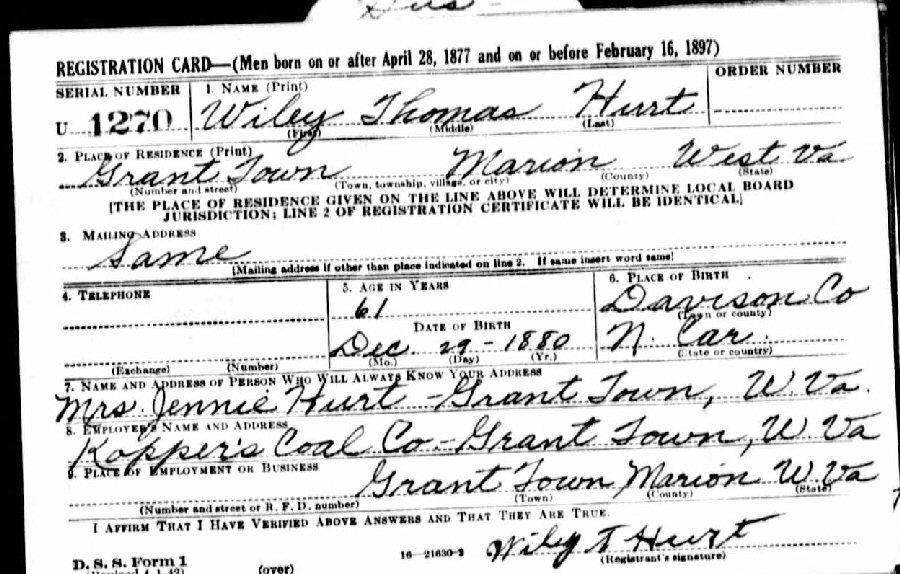 REGISTRATION CARD—(Men born on or after April 28, 1877 and on or before February 16, 1897)
SERIAL NUMBER 1. NAME (Print) ORDER NUMBER
U 1270 Wiley Thomas Hurt
(First) (Middle) (Last)
2. PLACE OF RESIDENCE (Print)
Grant Town Marion West Va
(Number and street) (Town, township, village, or city) (County) (State)
[THE PLACE OF RESIDENCE GIVEN ON THE LINE ABOVE WILL DETERMINE LOCAL BOARD
JURISDICTION; LINE 2 OF REGISTRATION CERTIFICATE WILL BE IDENTICAL]
3. MAILING ADDRESS
Same
[Mailing address if other than place indicated on line 2. If same insert word same]
4. TELEPHONE 5. AGE IN YEARS 6. PLACE OF BIRTH
61 Davison Co
DATE OF BIRTH (Town or county)
Dec. 29 - 1880 N. Car.
(Exchange) (Number) (Mo.) (Day) (Yr.) (State or country)
7. NAME AND ADDRESS OF PERSON WHO WILL ALWAYS KNOW YOUR ADDRESS
Mrs Jennie Hurt - Grant Town, W Va.
8. EMPLOYER'S NAME AND ADDRESS
Kopper's Coal Co - Grant Town, W Va
9. PLACE OF EMPLOYMENT OR BUSINESS
Grant Town Marion W Va
(Number and street or R. F. D. number) (Town) (County) (State)
I AFFIRM THAT I HAVE VERIFIED ABOVE ANSWERS AND THAT THEY ARE TRUE.
Wiley T Hurt
D. S. S. Form 1 16—21630-2 (Registrant's signature)
(Revised 4-1-42) (over)